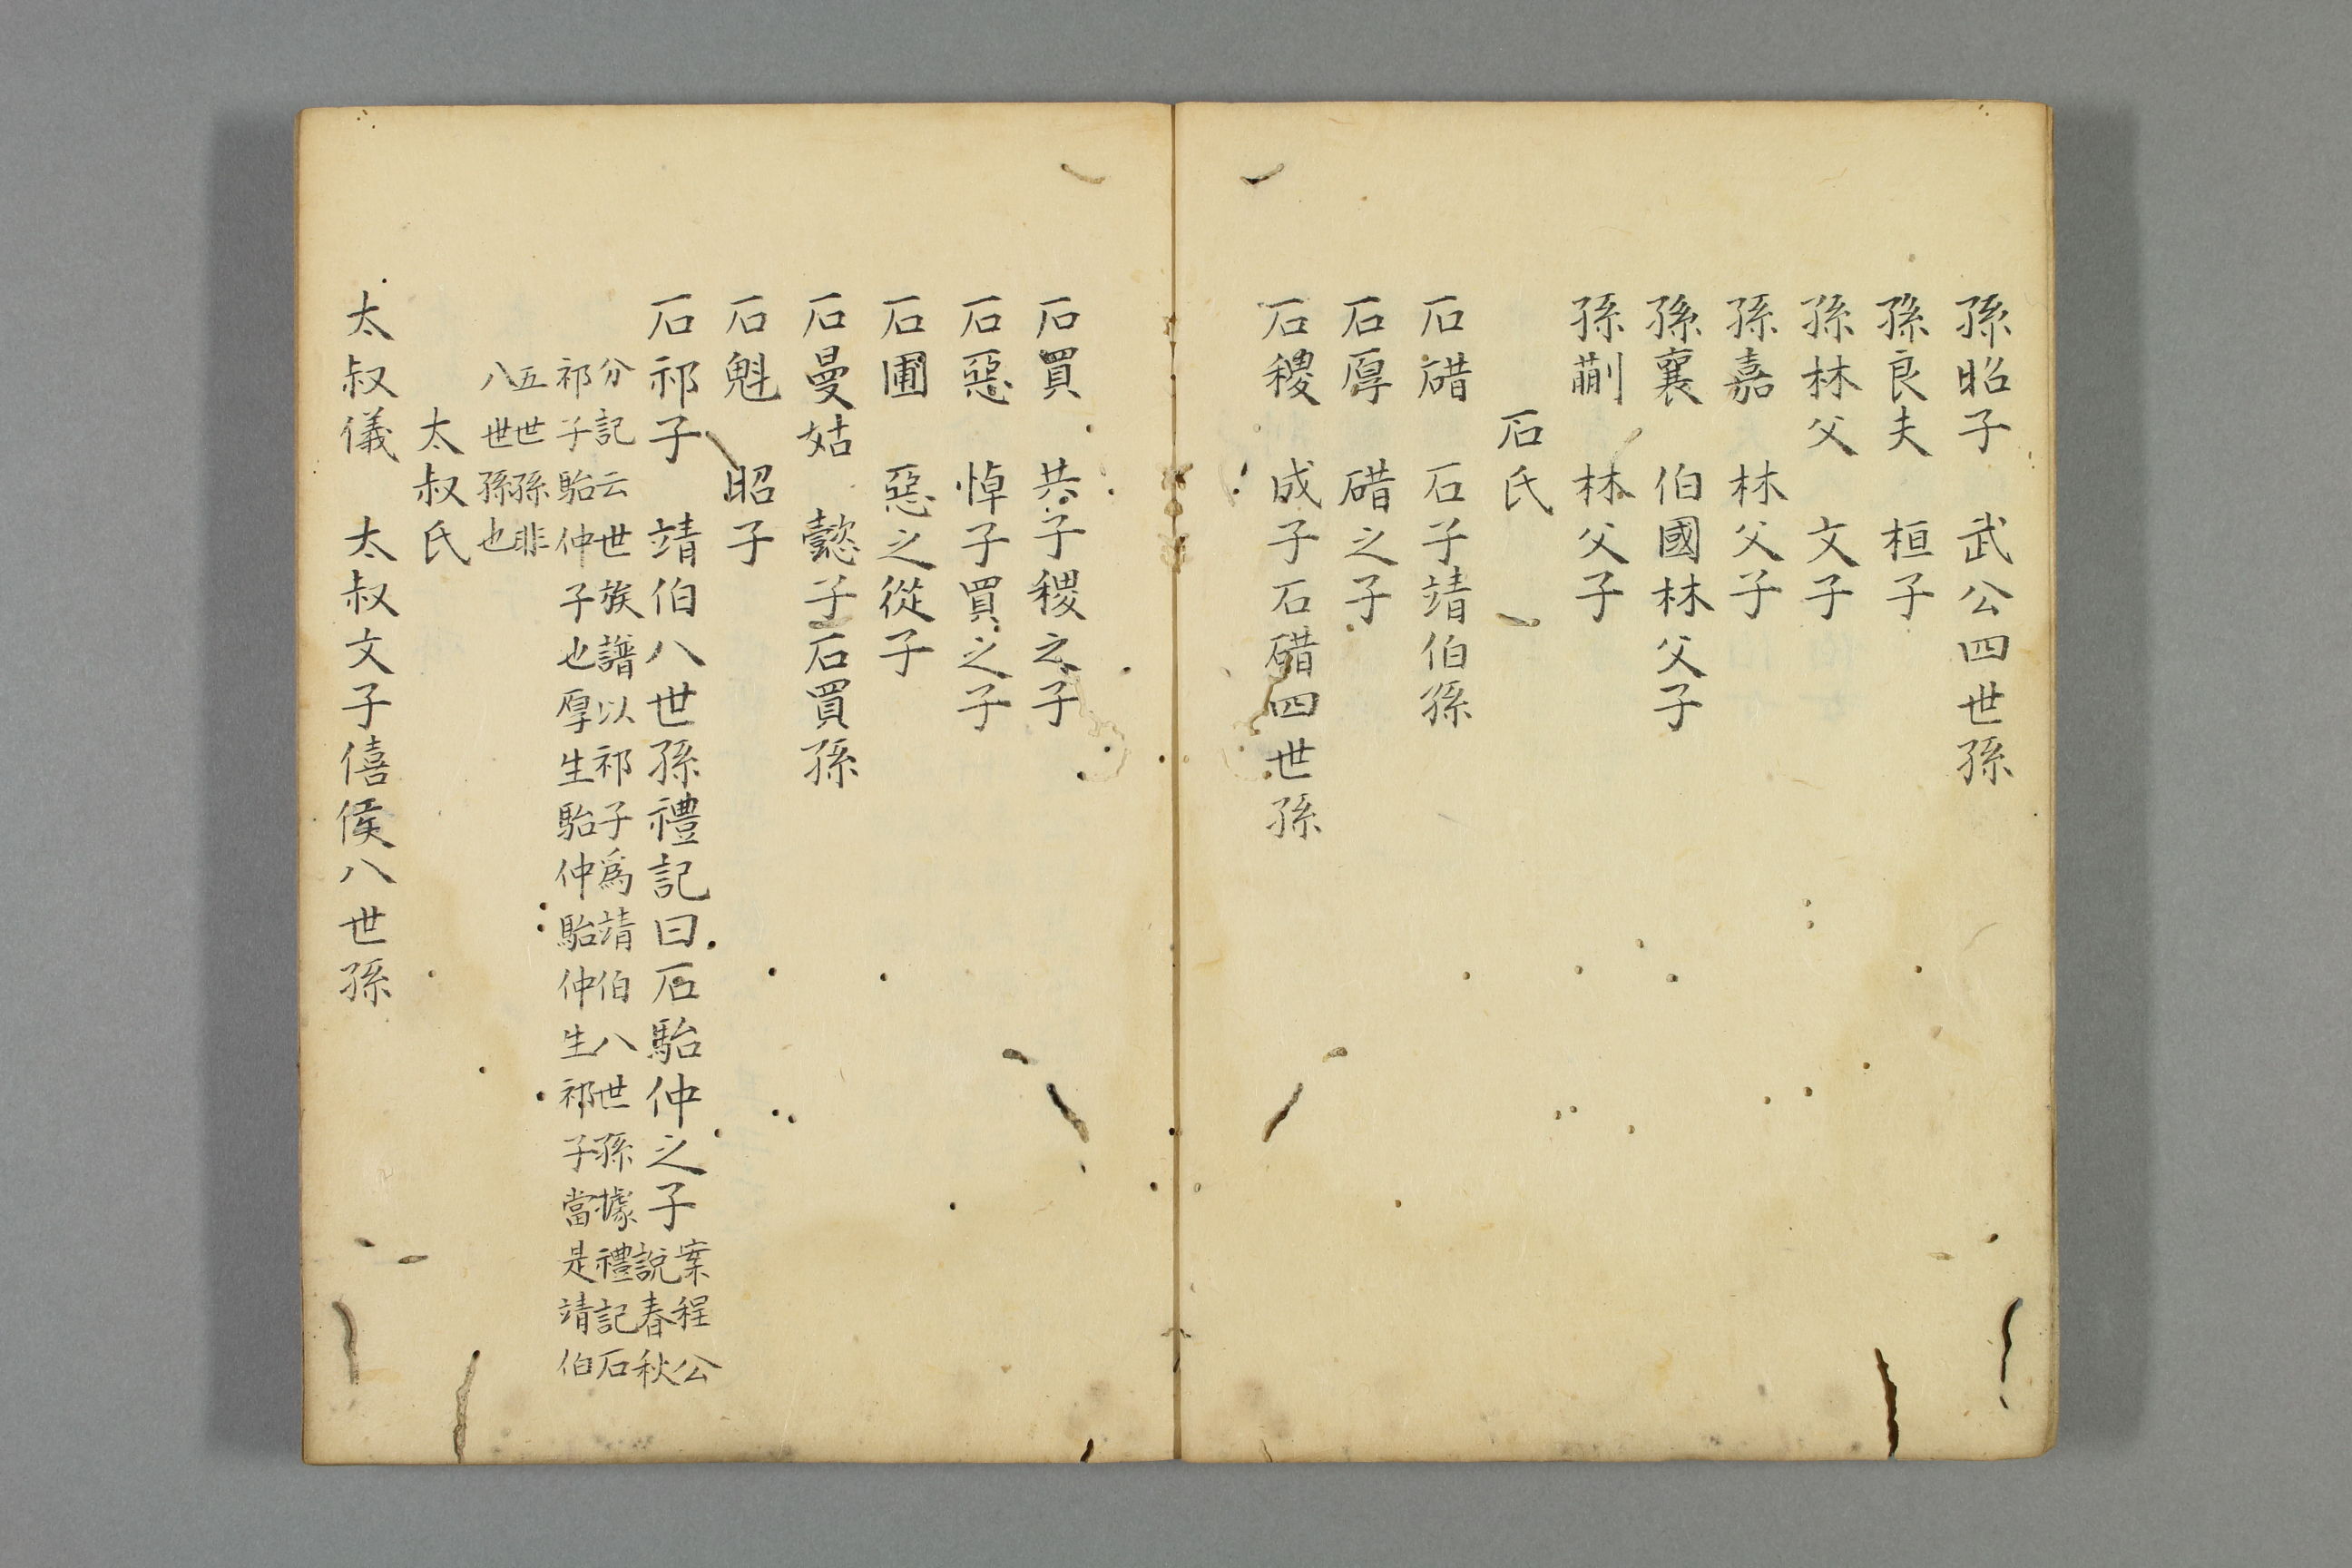 孫昭子　武公四世孫
孫良夫　桓子
孫林父　文子
孫嘉　林父子
孫襄　伯國林父子
孫蒯　林父子
石氏
石碏　石子靖伯孫
石厚　碏之子
石稷　成子石碏四世孫
石買　共子稷之子
石惡　悼子買之子
石圃　惡之從子
石曼姑　懿子石買孫
石魁　昭子
石祁子　靖伯八世孫禮記曰石駘仲之子
案程公
說春秋
分記云世族譜以祁子爲靖伯八世孫據禮記石
祁子駘仲子也厚生駘仲駘仲生祁子當是靖伯
五世孫非
八世孫也
太叔氏
太叔儀　太叔文子僖侯八世孫